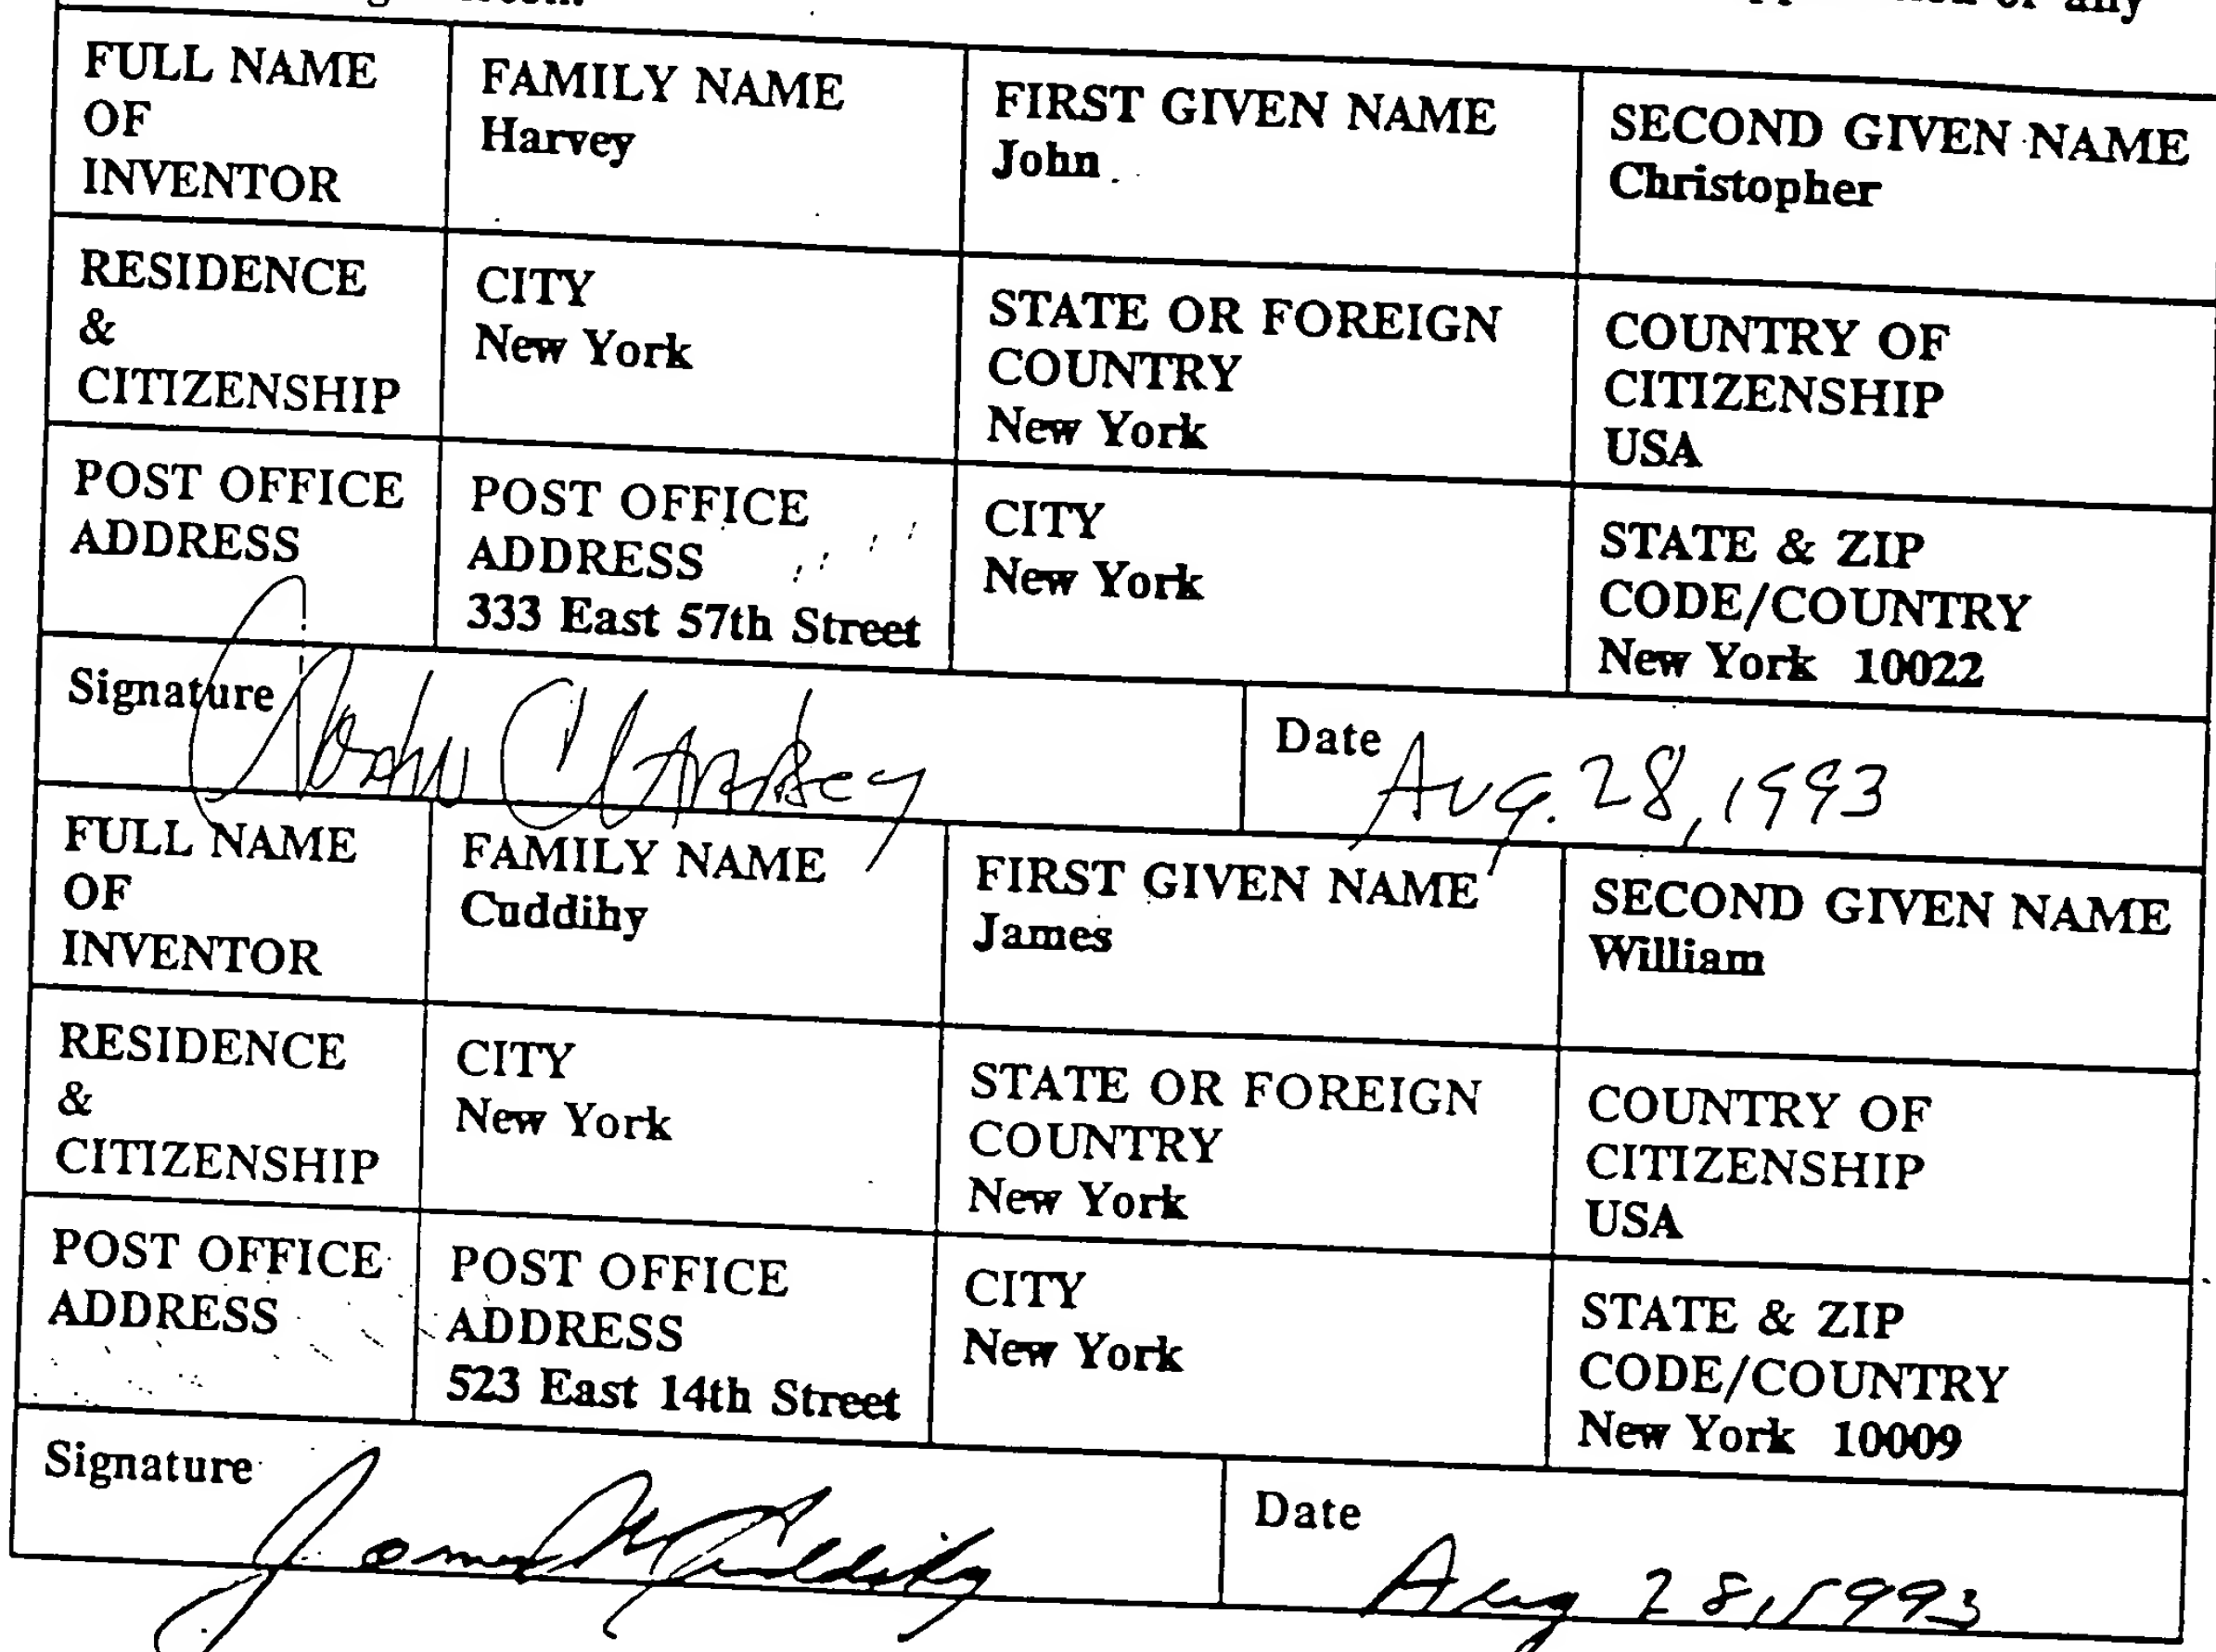 or any
FULL NAME
OF
INVENTOR
FAMILY NAME
Harvey
FIRST GIVEN NAME
John
SECOND GIVEN NAME
Christopher
RESIDENCE
&
CITIZENSHIP
CITY
New York
STATE OR FOREIGN
COUNTRY
New York
COUNTRY OF
CITIZENSHIP
USA
POST OFFICE
ADDRESS
POST OFFICE
ADDRESS
333 East 57th Street
CITY
New York
STATE & ZIP
CODE/COUNTRY
New York 10022
Signature
John C Harvey
Date Aug. 28, 1993
FULL NAME
OF
INVENTOR
FAMILY NAME
Cuddihy
FIRST GIVEN NAME
James
SECOND GIVEN NAME
William
RESIDENCE
&
CITIZENSHIP
CITY
New York
STATE OR FOREIGN
COUNTRY
New York
COUNTRY OF
CITIZENSHIP
USA
POST OFFICE
ADDRESS
POST OFFICE
ADDRESS
523 East 14th Street
CITY
New York
STATE & ZIP
CODE/COUNTRY
New York 10009
Signature
James W Cuddihy
Date
Aug 28, 1993